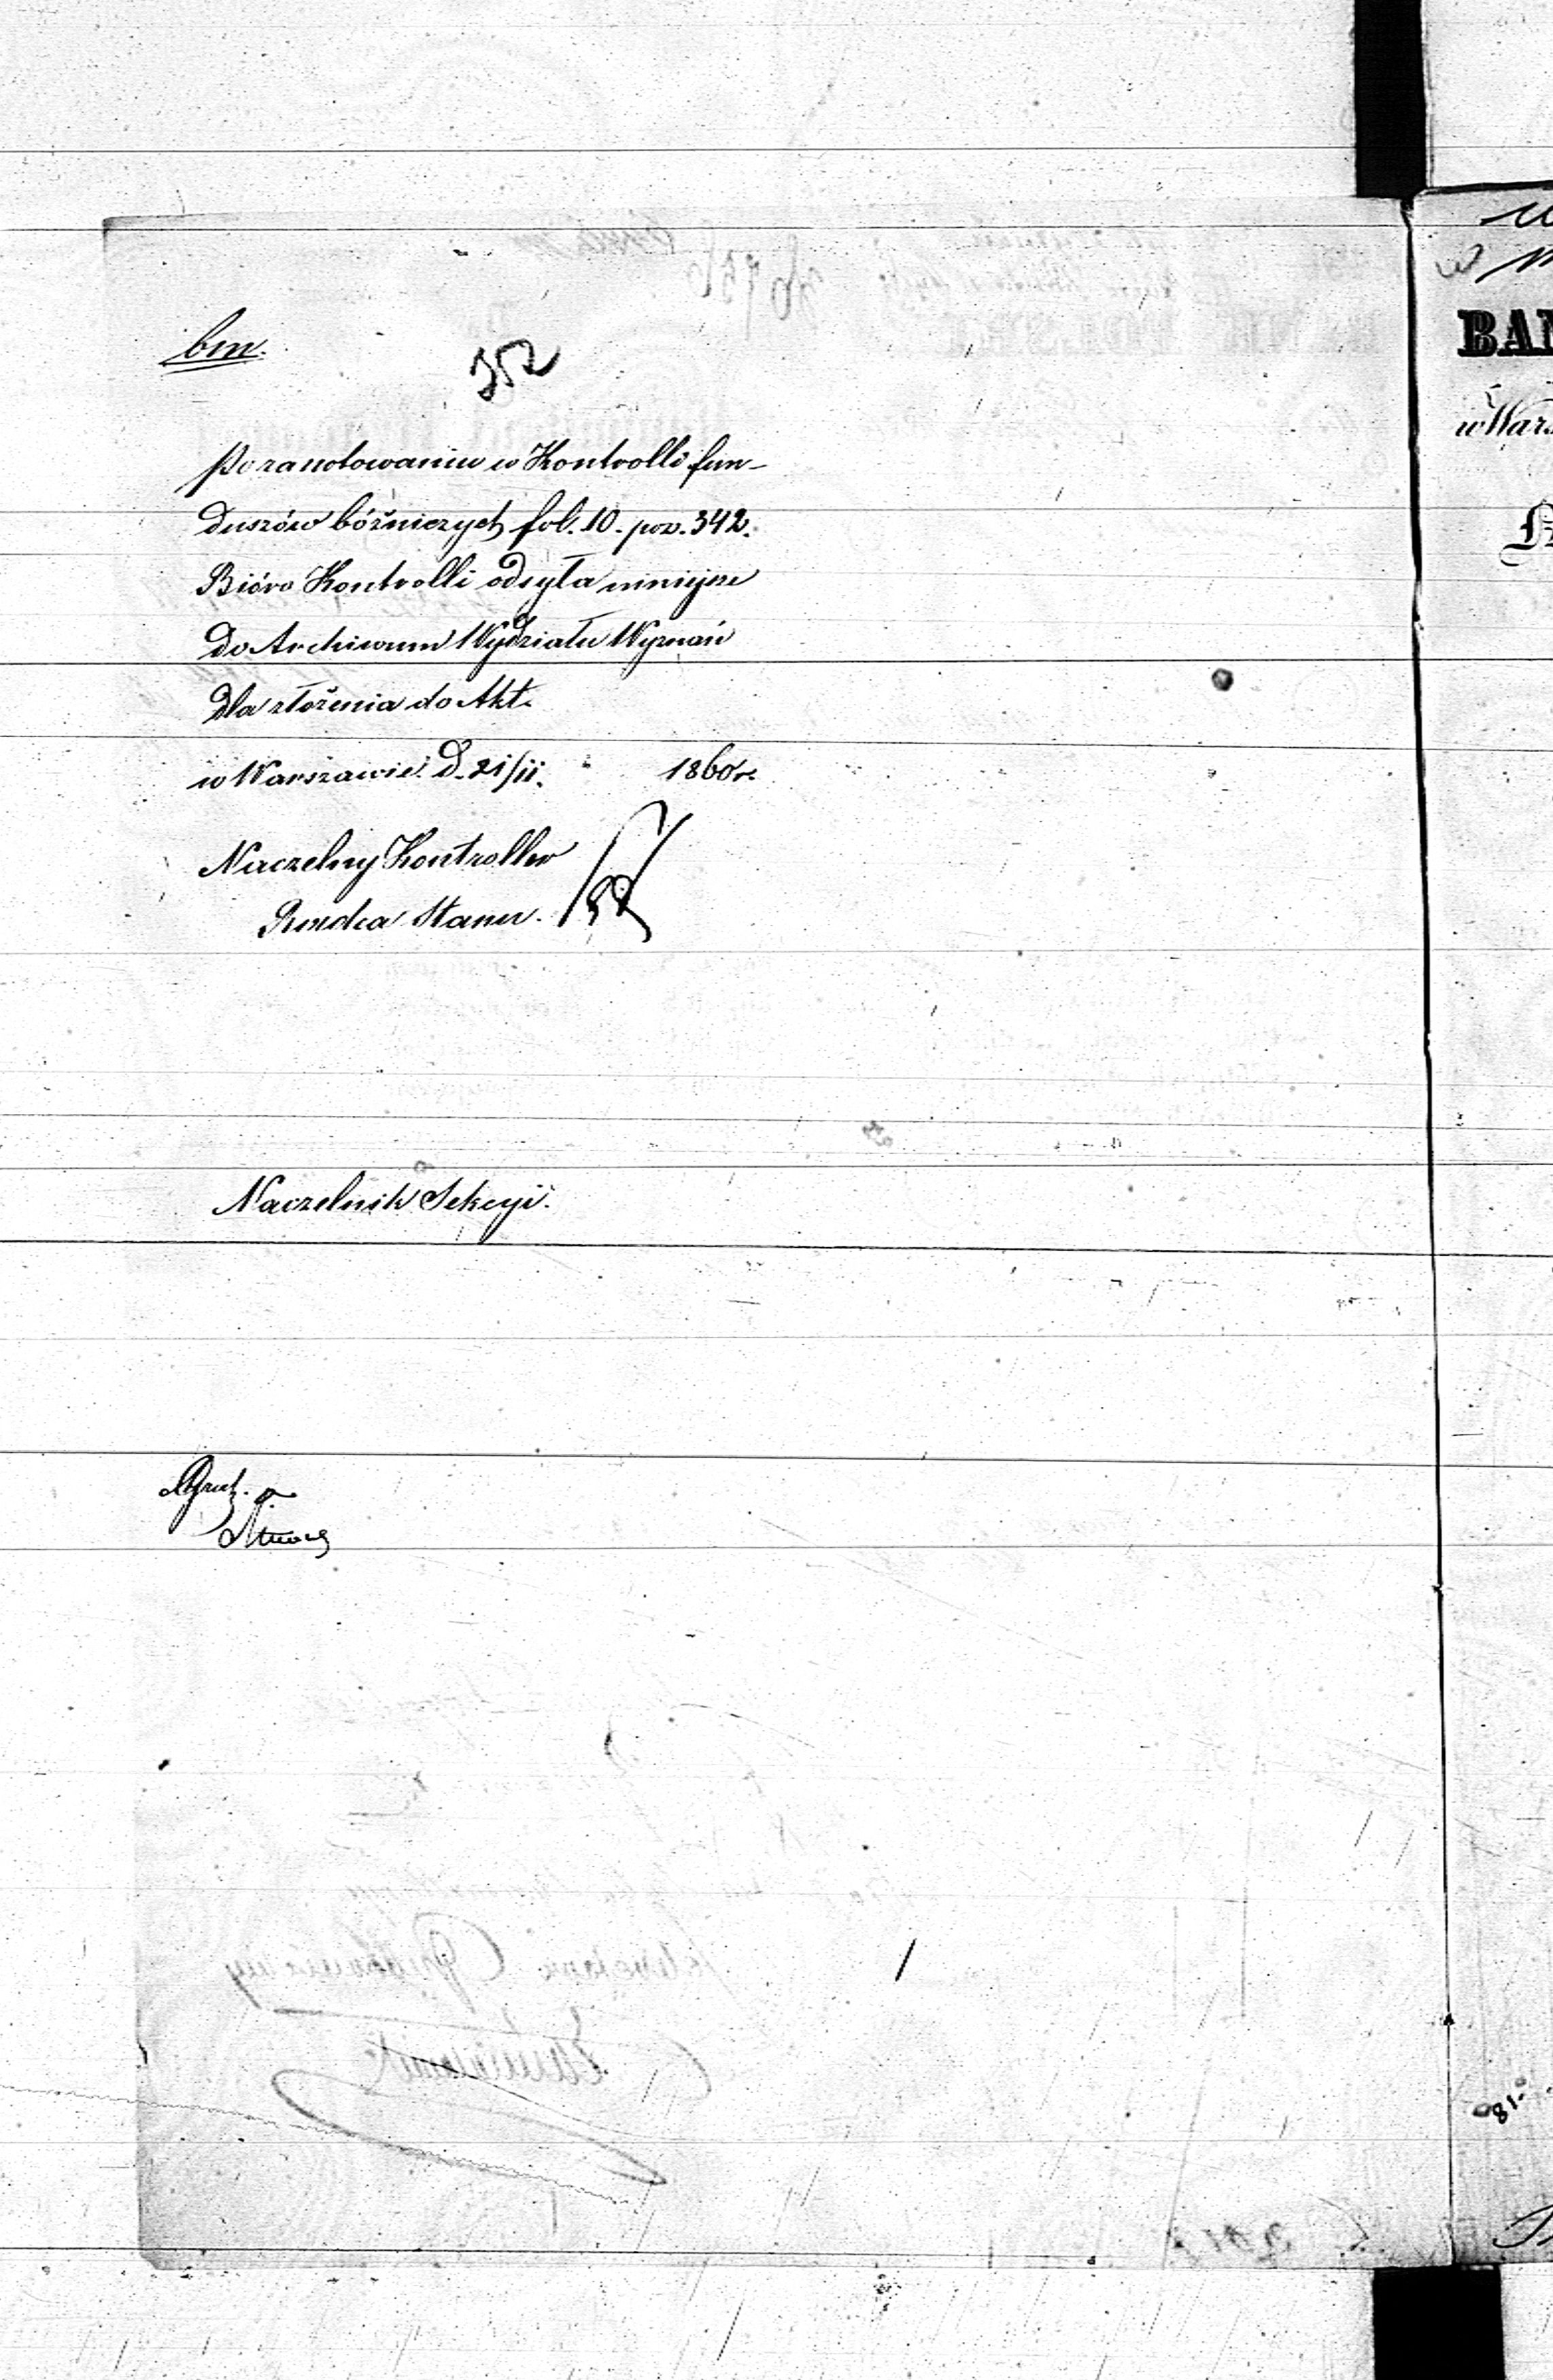 bm.
352
Po zanotowaniu w Kontrolli fun-
duszów bóżniczych fol. 10. poz. 342.
Bióro Kontrolli odsyła niniejsze
do Archiwum Wydziału Wyznań
dla złożenia do Akt.
w Warszawie D. 21/11. 1860 r.
Naczelny Kontroller
Radca Stanu.
Naczelnik Sekcyi.
BAN
w Wars